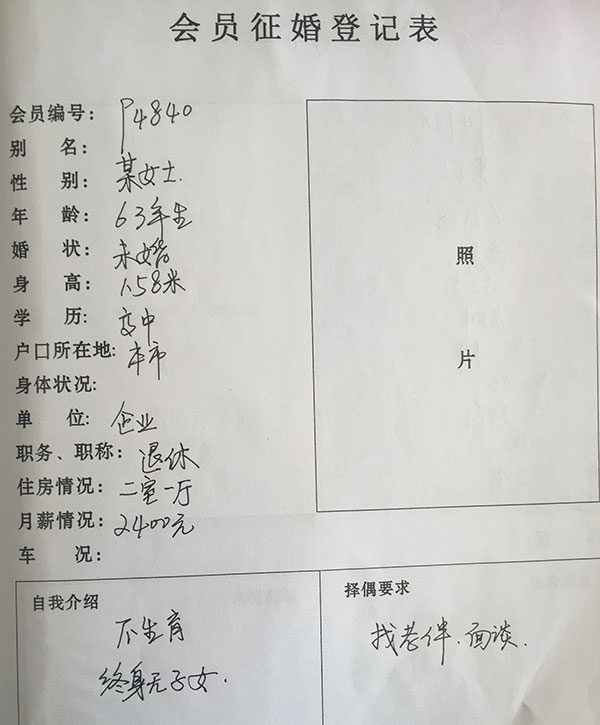 会员征婚登记表
会员编号： P4840
别 名：
性 别： 某女士.
年 龄： 63年生
婚 状： 未婚
身 高： 1.58米
学 历： 高中
户口所在地： 本市
身体状况：
单 位： 企业
职务、职称： 退休
住房情况： 二室一厅
月薪情况： 2400元
车 况：
照
片
自我介绍
不生育
终身无子女.
择偶要求
找老伴.面谈.